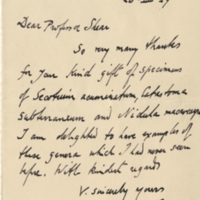 Dear Professor Shear
So very many thanks
for your kind gift of specimens
of Secotium acuminatum, Catastoma
subterraneum and Nidula macrocarpa
I am delighted to have examples of
these genera which I had never seen
before. With kindest regards
V. sincerely yours